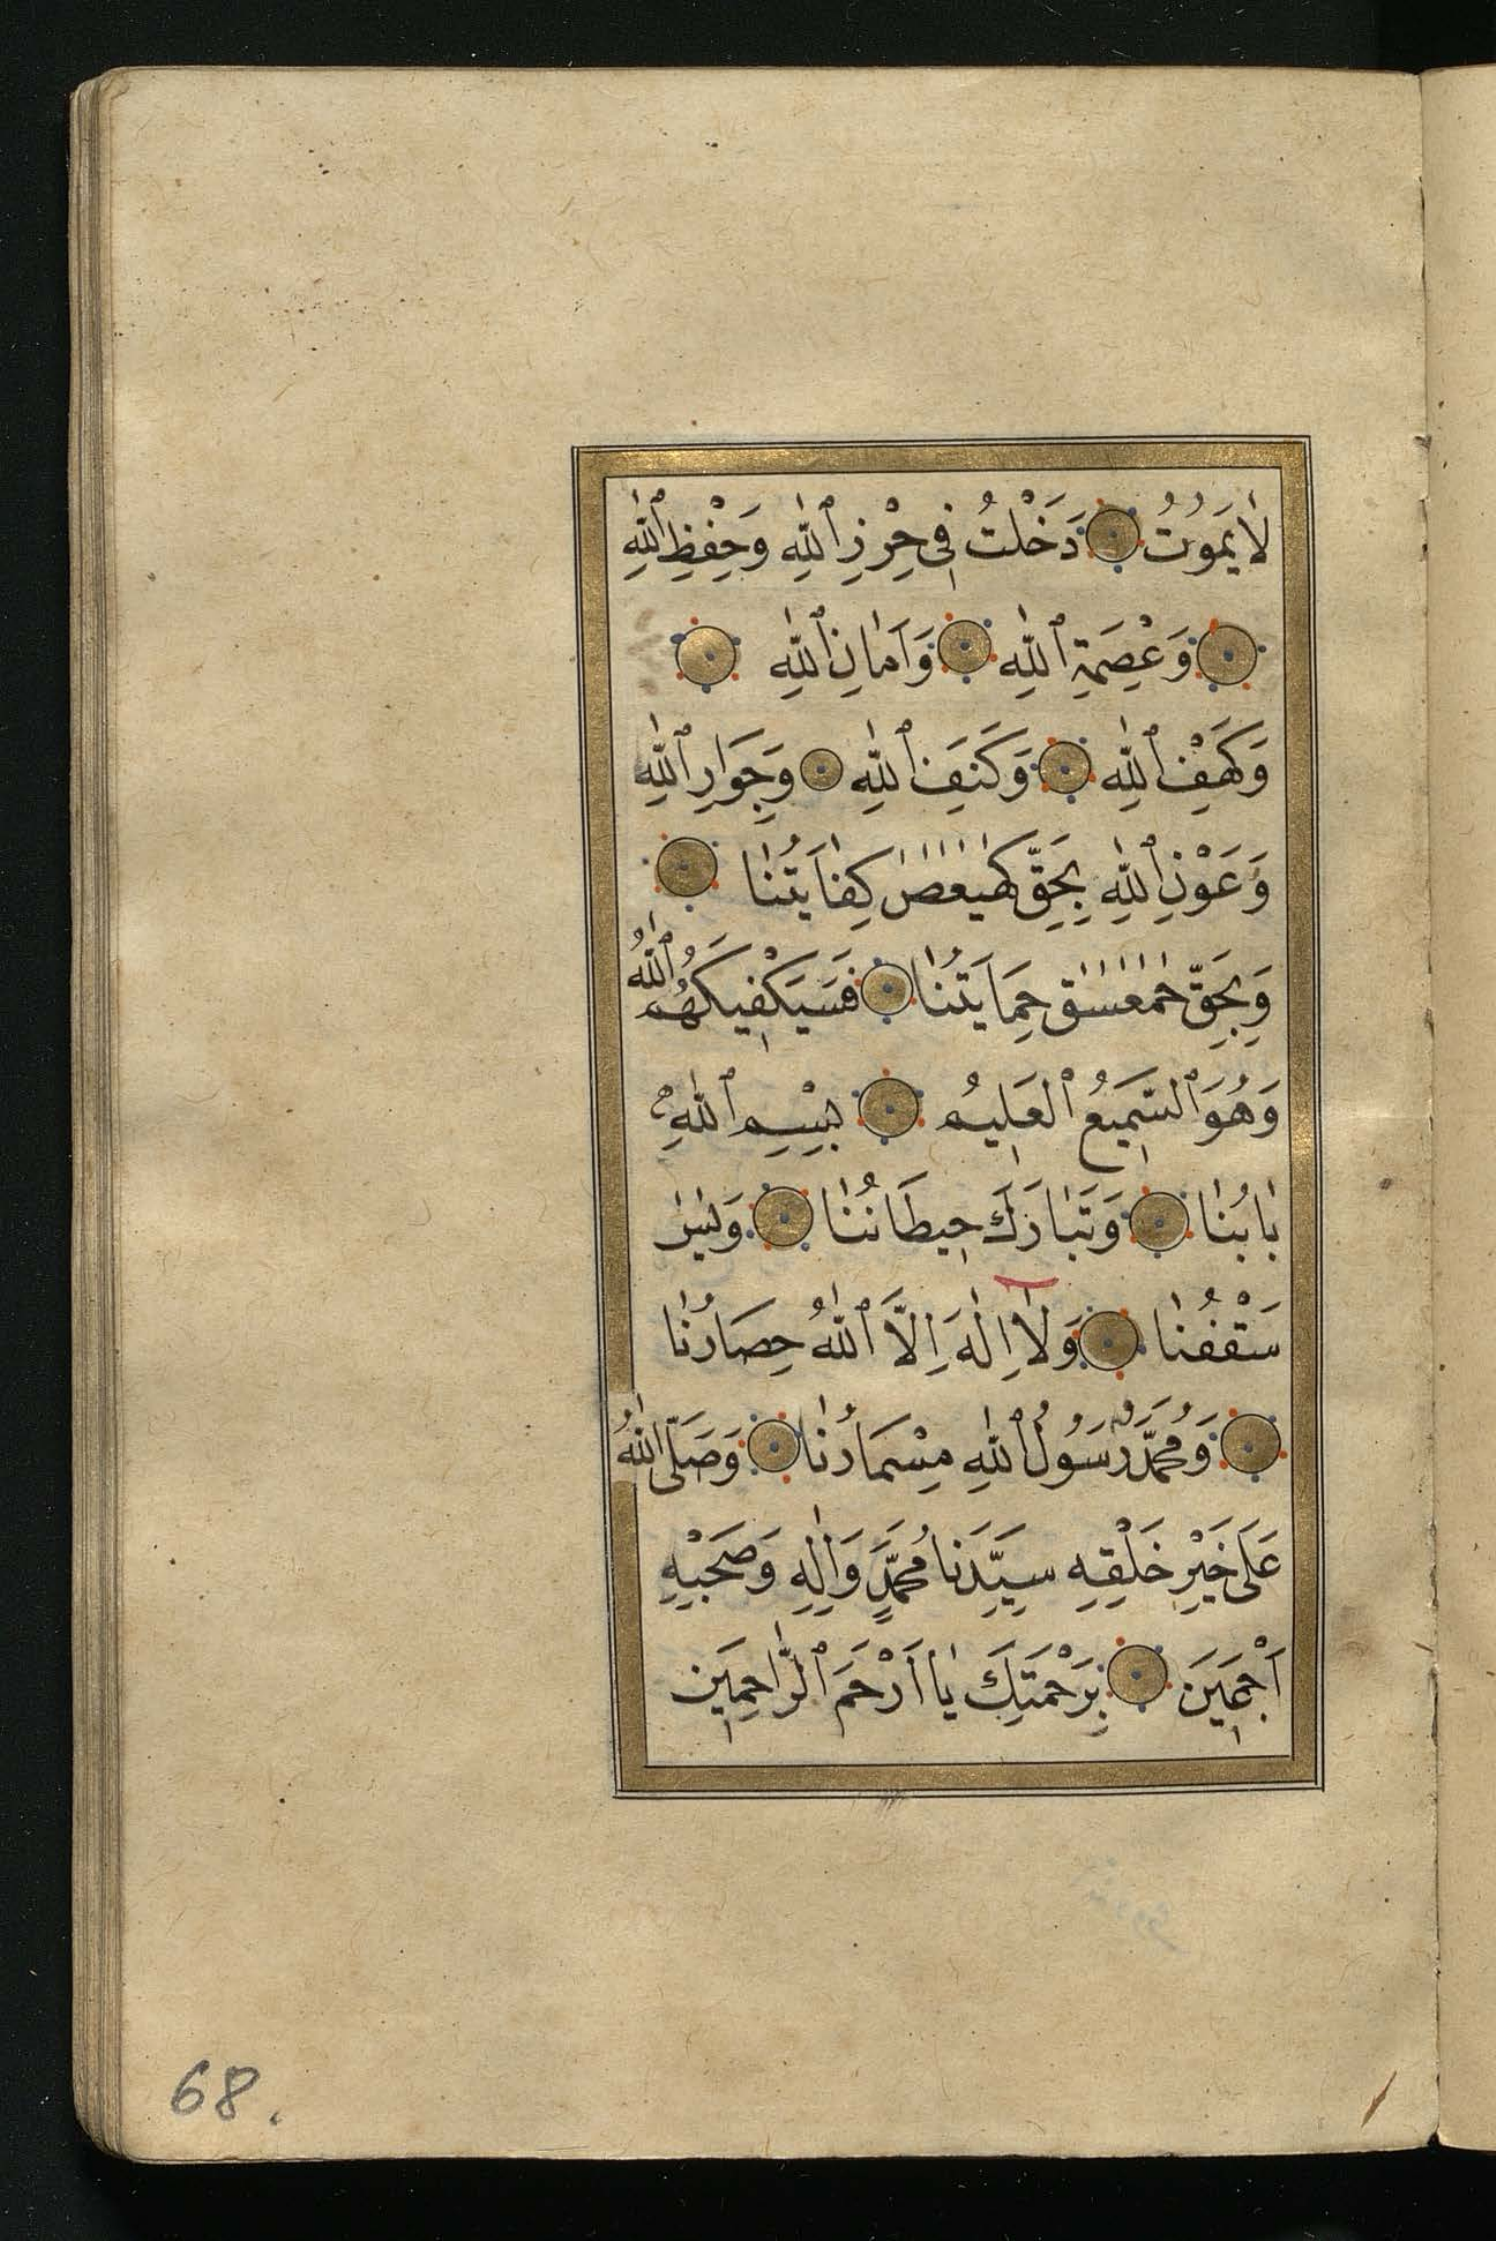 لَا يَمُوتُ دَخَلْتُ فِى حِرْزِ ٱللّٰهِ وَحِفْظِ ٱللّٰهِ
وَعِصْمَةِ ٱللّٰهِ وَاَمَانِ ٱللّٰهِ
وَكَهْفِ ٱللّٰهِ وَكَنَفِ ٱللّٰهِ وَجِوَارِ ٱللّٰهِ
وَعَوْنِ ٱللّٰهِ بِحَقِّ كٓهٰيٰعٓصٓ كِفَايَتُنَا
وَبِحَقِّ حٰمٓعٓسٓقٓ حِمَايَتُنَا فَسَيَكْفِيكَهُمُ ٱللّٰهُ
وَهُوَ ٱلسَّمِيعُ ٱلْعَلِيمُ بِسْمِ ٱللّٰهِ
بَابُنَا وَتَبَارَكَ حِيطَانُنَا وَيٰسٓ
سَقْفُنَا وَلَا اِلٰهَ اِلَّا ٱللّٰهُ حِصَارُنَا
وَمُحَمَّدٌ رَسُولُ ٱللّٰهِ مِسْمَارُنَا وَصَلَّى ٱللّٰهُ
عَلَى خَيْرِ خَلْقِهِ سَيِّدِنَا مُحَمَّدٍ وَاٰلِهِ وَصَحْبِهِ
اَجْمَعِينَ بِرَحْمَتِكَ يَا اَرْحَمَ ٱلرَّاحِمِينَ
68.